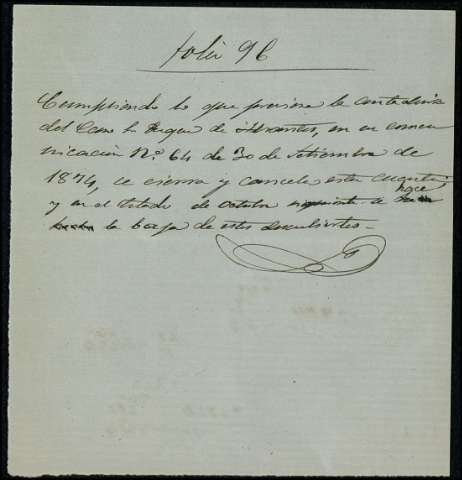 folio 96
Cumpliendo lo que previene la contaduria
del de en su comu
nicación N.º 64 de 30 de Setiembre de
1874, se cierra y cancela esta cuenta
y en el Estado de octubre siguiente se hace
la baja de este descubierto.-